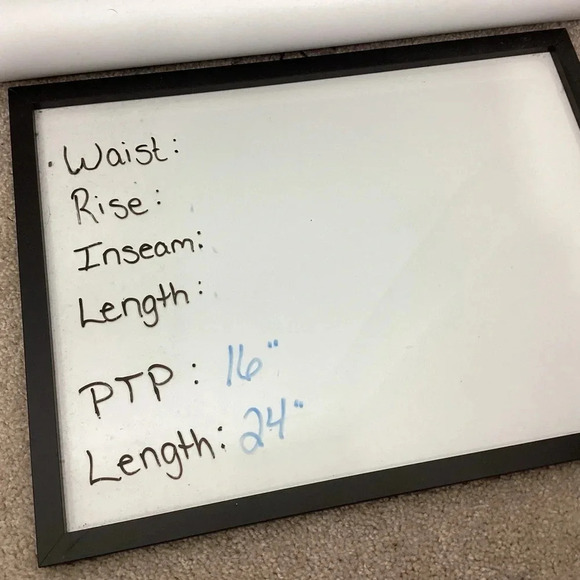 Waist:
Rise:
Inseam:
Length:
PTP: 16"
Length: 24"